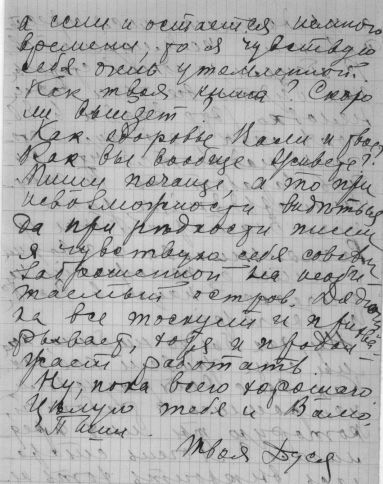 а если и остается немного
времени, то я чувствую
себя очень утомленной.
Как твоя книга? Скоро
ли выйдет.
Как здоровье Вали и твое?
Как вы вообще живете?
Пиши почаще, а то при
невозможности видѣться
да при рѣдкости писем
я чувствую себя совсем
заброшенной на необи
таемый остров. Дядь
ка все тоскует и прихва
рывает, хотя и продол-
жает работать.
Ну, пока всего хорошего
Цѣлую тебя и Валю.
Пиши.
Твоя Дуся